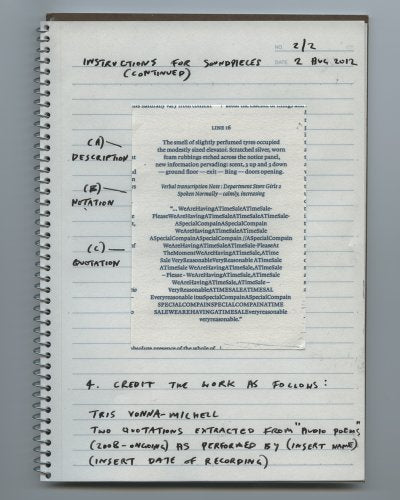 NO. 2/2
INSTRUCTIONS FOR SOUNDPIECES DATE 2 AUG 2012
(CONTINUED)
LINE 16
(A)—
DESCRIPTION
The smell of slightly perfumed tyros occupied
the modestly sized elevator. Scratched silver, worn
foam rubbings etched across the notice panel,
new information pervading: scent, 2 up and 3 down
— ground floor — exit — Bing — doors opening.
(B)—
NOTATION
Verbal transcription Note : Department Store Girls 2
Spoken Normally — calmly, increasing
(C)—
QUOTATION
"... WeAreHavingATimeSaleATimeSale-
PleaseWeAreHavingATimeSaleATimeSale-
ASpecialCompainASpecialCompain
WeAreHavingATimeSaleATimeSale
ASpecialCompainASpecialCompain //ASpecialCompain
WeAreHavingATimeSale-PleaseAt
TheMomentWeAreHavingATimeSale, ATime
Sale VeryReasonableVeryReasonable ATimeSale
ATimeSale WeAreHavingATimeSale, ATimeSale
—Please - WeAreHavingATimeSale, ATimeSale
WeAreHavingATimeSale, ATimeSale —
VeryReasonableATIMESALEATIMESAL
Everyreasonable itssSpecialCompainASpecially
SPECIALCOMPAINSPECIALCOMPAINATIME
SALEWEAREHAVINGATIMESALEveryreasonable
veryreasonable."
absolute presence of the whole of
4. CREDIT THE WORK AS FOLLOWS:
TRIS VONNA-MICHELL
TWO QUOTATIONS EXTRACTED FROM "AUDIO POEMS"
(2008-ONGOING) AS PERFORMED BY (INSERT NAME)
(INSERT DATE OF RECORDING)